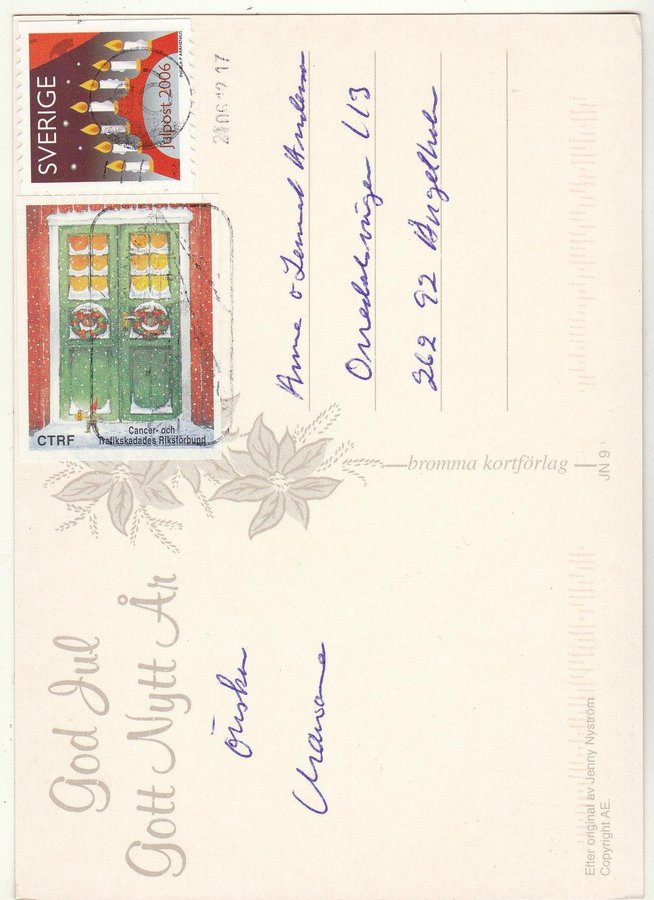 God Jul
Gott Nytt År
önskar
Efter original av Jenny Nyström
Copyright AE.
bromma kortförlag
JN 9
SVERIGE
Julpost 2006
CTRF
Cancer- och
Trafikskadades Riksförbund
Anna o Lennart Andersson
113
262 92 Ängelholm